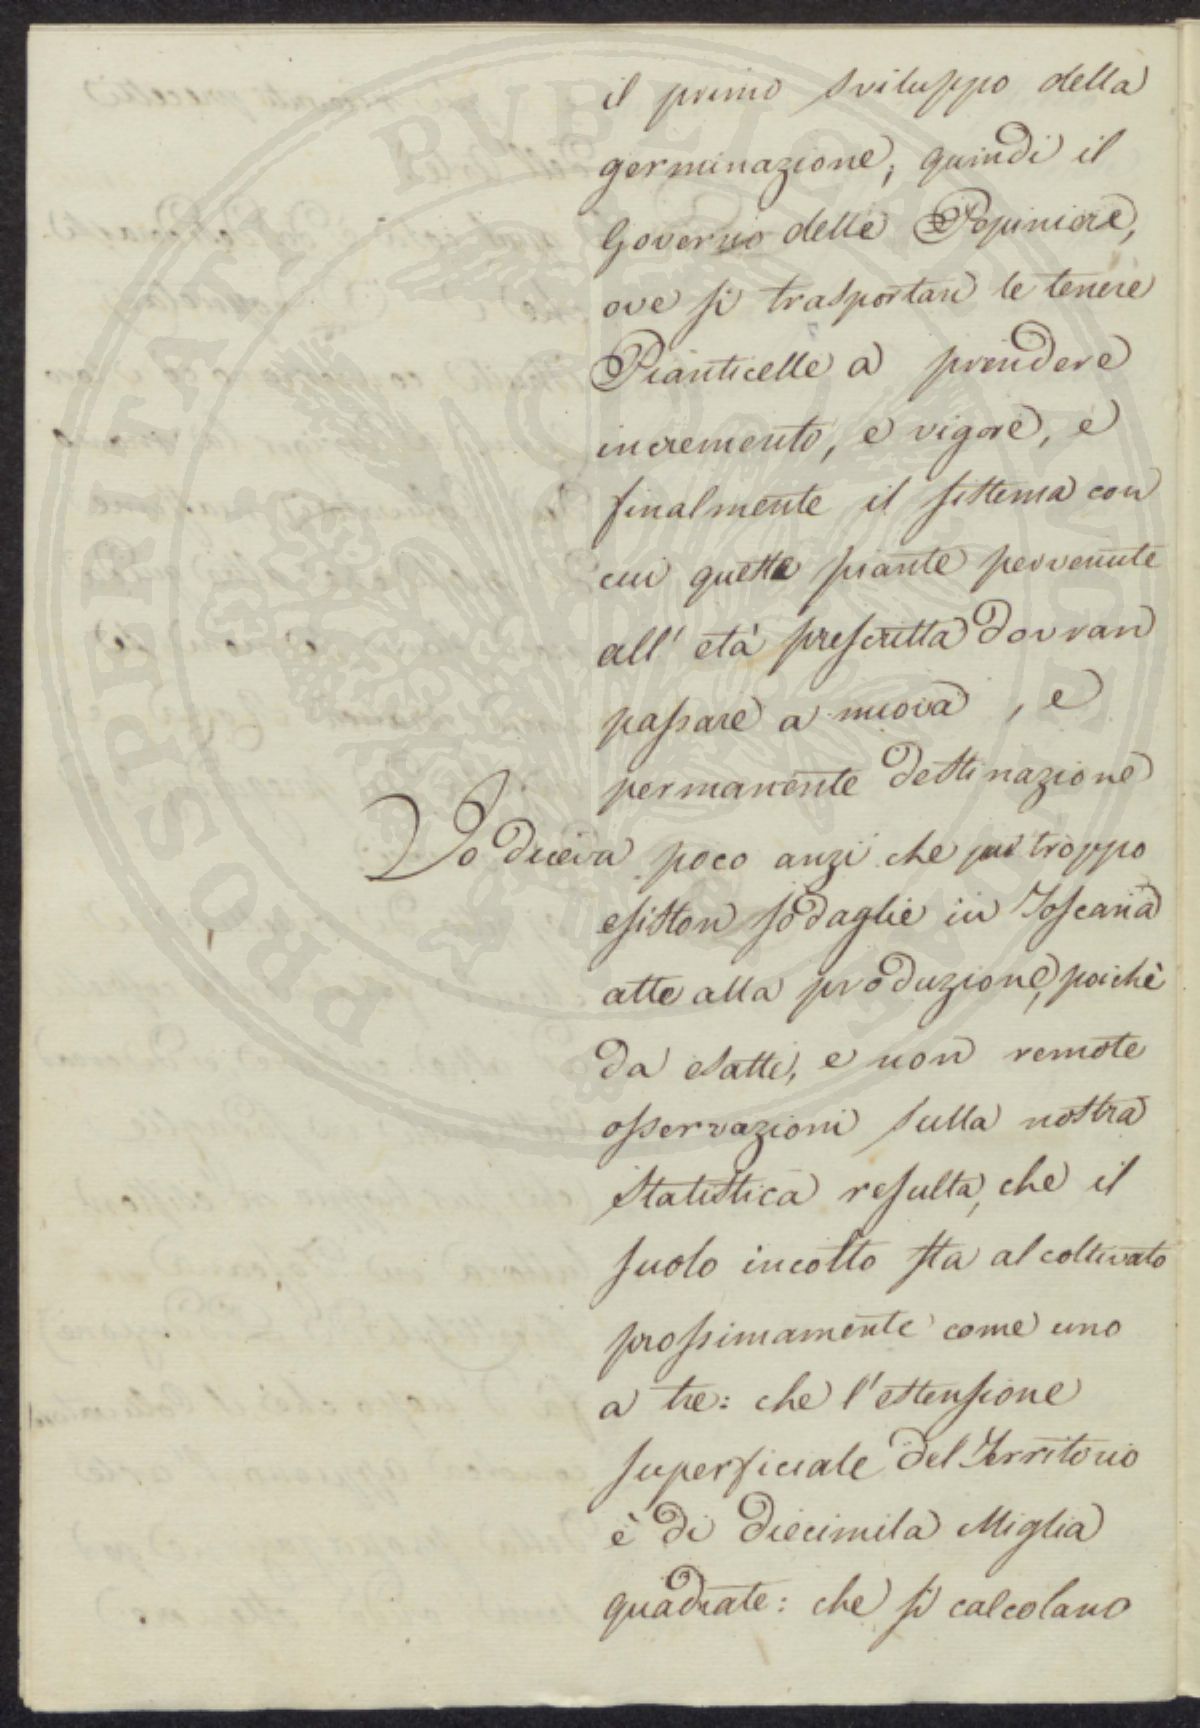 PROSPERITATI PUBLICAE AUGENDAE
il primo sviluppo della
germinazione, quindi il
Governo delle Pepiniere,
ove si trasportan le tenere
Pianticelle a prendere
incremento, e vigore, e
finalmente il sistema con
cui queste piante pervenute
all' età prescritta dovran
passare a nuova, e
permanente destinazione
Io diceva poco anzi che pur troppo
esiston sodaglie in Toscana
atte alla produzione, poichè
da esatte, e non remote
osservazioni sulla nostra
statistica resulta, che il
suolo incolto sta al coltivato
prossimamente come uno
a tre: che l'estensione
superficiale del Territorio
è di diecimila Miglia
quadrate: che si calcolano